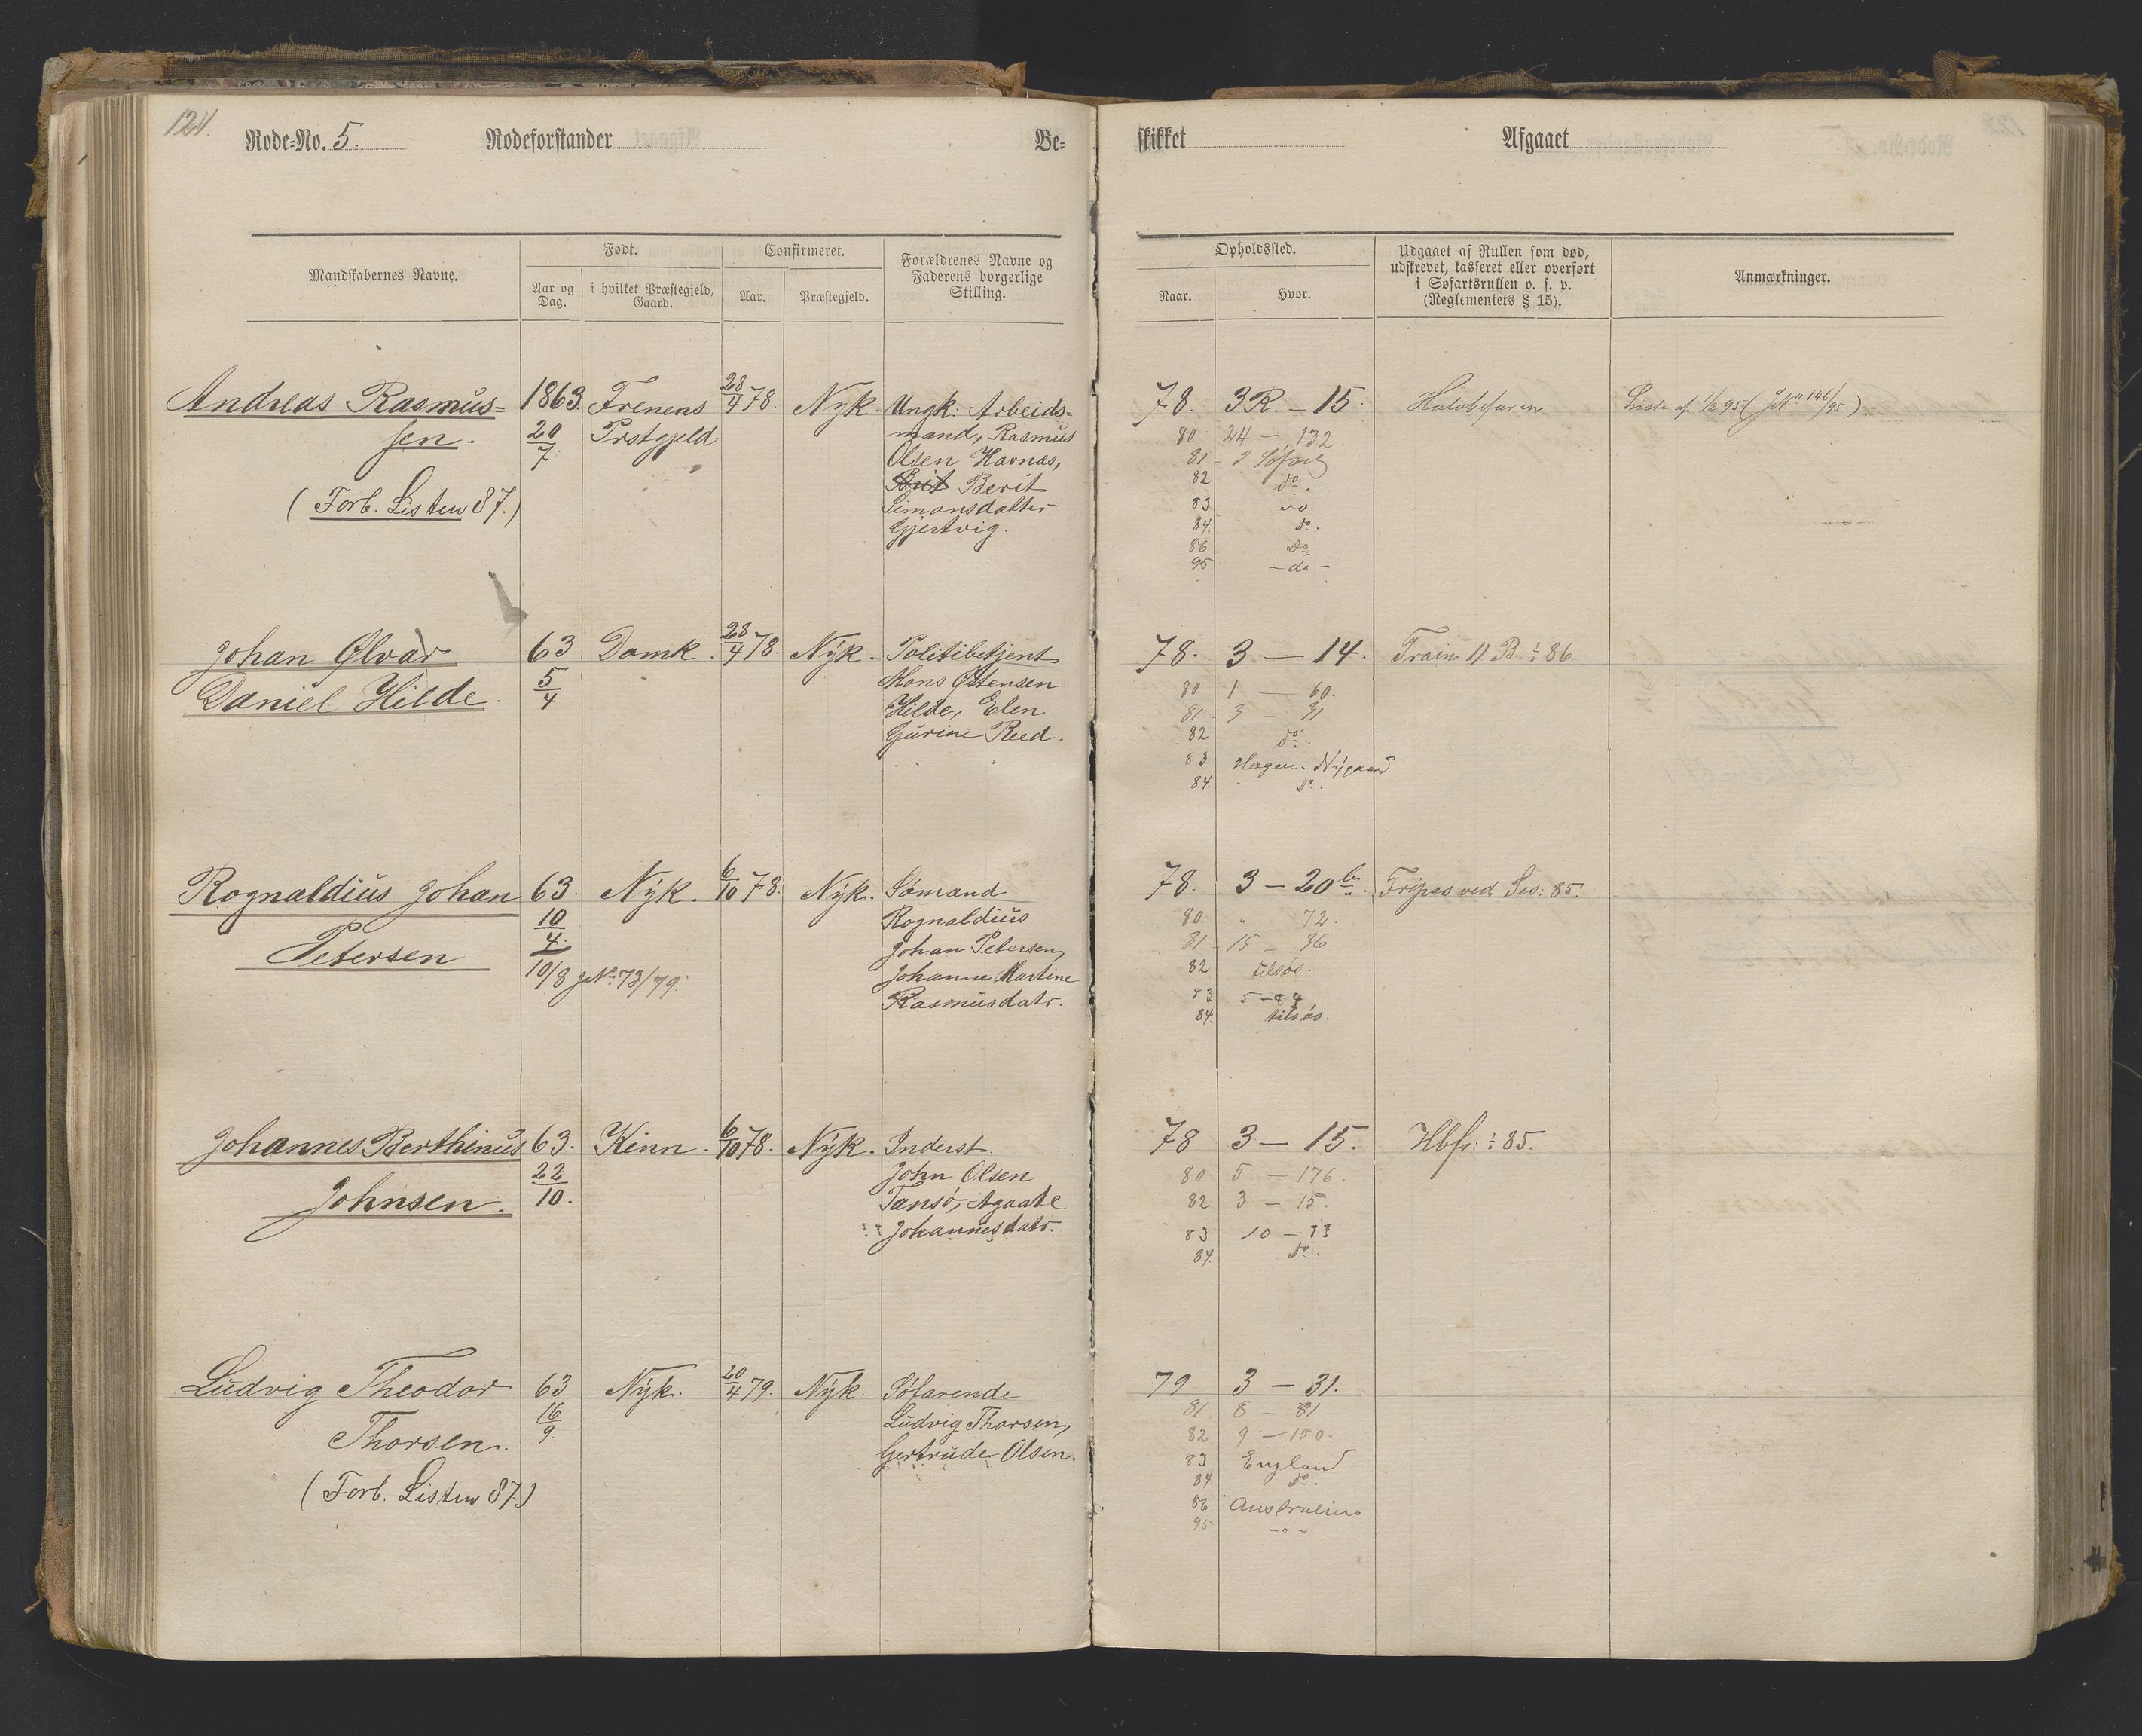 124.
Rode-No. 5. Rodeforstander Be-
skikket Afgaaet
Mandskabernes Navne. Født. Aar og Dag. i hvilket Præstegjeld, Gaard. Confirmeret. Aar. Præstegjeld. Forældrenes Navne og Faderens borgerlige Stilling.
Opholdssted. Naar. Hvor. Udgaaet af Rullen som død, udskrevet, kasseret eller overført i Søfartsrullen o. s. v. (Reglementets § 15). Anmærkninger.
Andreas Rasmus= 1863. Frenens 28/4 78. Nyk. Ungk: Arbeids=
sen. 20/7 Prstgjeld mand, Rasmus
Olsen Havnas,
Berit
(Forb. Listen 87.) Simonsdatter
Gjertvig.
78. 3R. – 15. Halvbefaren
80 24 – 132.
81
82 do.
83 do
84. do.
86 Do
95 – do –
Johan Ølvar 63 Domk. 28/4 78. Nyk. Politibetjent
Daniel Hilde. 5/4 Mons Østensen
Hilde, Elen
Gurine Reed.
78. 3 – 14. Train 11 B 1/1 86.
80 1 – 60.
81 – 3 – 31
82 do.
83 Hagen. Nygaard
84. do.
Rognaldius Johan 63. Nyk. 6/10 78. Nyk. Sømand
Petersen 10/4. Rognaldius
Johan Petersen,
10/8 JNo. 73/79. Johanne Martine
Rasmusdatr.
78. 3 – 20 b. Fripas ved Ses: 85.
80 " 72.
81 – 15 – 36
82 tilsøs.
83 5 – 84
84. tilsøs.
Johannes Berthinus 63. Kinn. 6/10 78. Nyk. Inderst.
Johnsen. 22/10. John Olsen
Tansø, Agaate
Johannesdatr.
78 3 – 15. Hbf. 1/1 85.
80 5 – 176.
82 3 – 15.
83 10 – 33
84. do.
Ludvig Theodor 63 Nyk. 20/4 79. Nyk. Søfarende
Thorsen. 16/9. Ludvig Thorsen,
Gertrude Olsen.
(Forb. Listen 87.)
79 3 – 31.
81 8 – 81
82 9 – 150.
83 England
84. do.
86 Australien
95 – " –